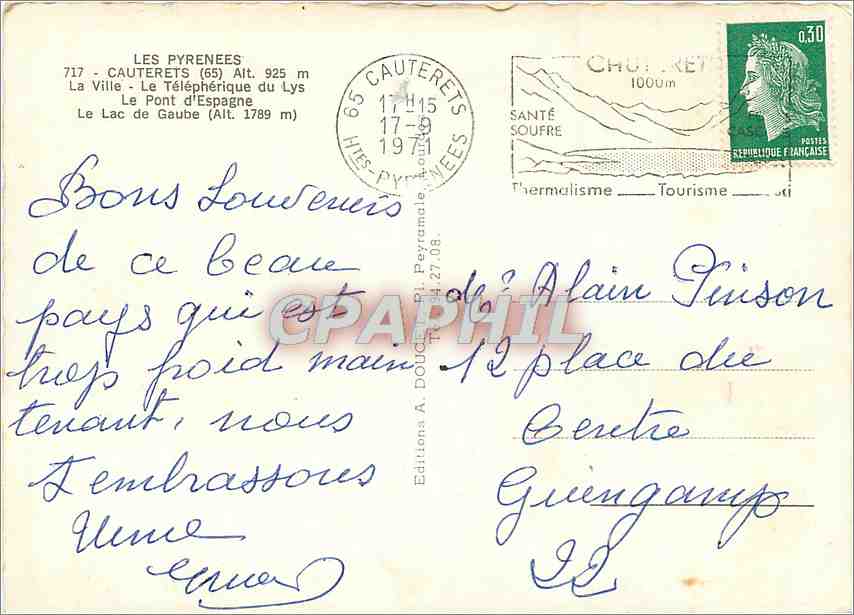 LES PYRENEES
717 - CAUTERETS (65) Alt. 925 m
La Ville - Le Téléphérique du Lys
Le Pont d'Espagne
Le Lac de Gaube (Alt. 1789 m)
65 CAUTERETS
17H15
17-9
1971
HTES-PYRENEES
1000m
SANTÉ
SOUFRE
Thermalisme Tourisme
0,30
POSTES
REPUBLIQUE FRANÇAISE
Bons Souvenirs
de ce beau
pays qui est
trop froid main
tenant, nous
t'embrassons
Editions A. DOUCET Pl. Peyramale, Lourdes
.27.08.
CPAPHIL
Alain Pinson
12 place du
Centre
Guingamp
22